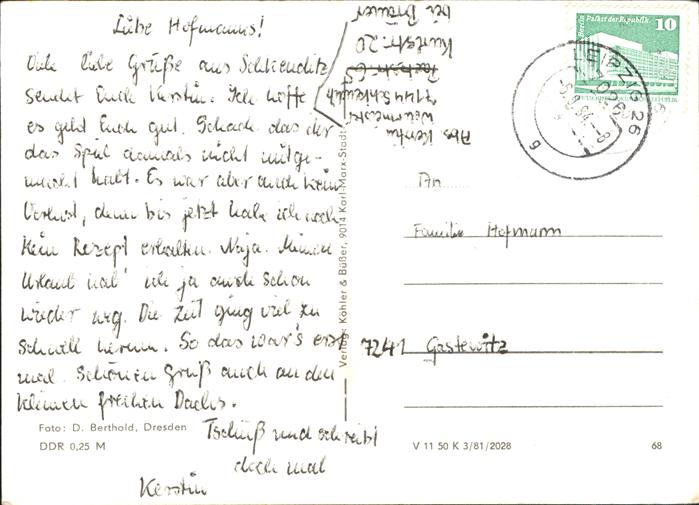 Liebe Hofmanns!
Viele liebe Grüße aus Schkeuditz
sendet Euch Kerstin. Ich hoffe
es geht Euch gut. Schade das ihr
das Spiel damals nicht mitge-
macht habt. Es war aber auch kein
Verlust, denn bis jetzt habe ich noch
kein Rezept erhalten. Naja. Meinen
Urlaub hab' ich ja auch schon
wieder weg. Die Zeit ging viel zu
schnell herum. So das war's erst
mal. Schönen Gruß auch an den
kleinen frechen Dachs.
Tschüß und schreibt
doch mal
Kerstin
Foto: D. Berthold, Dresden
DDR 0,25 M
Verlag: Köhler & Büßer, 9014 Karl-Marx-Stadt
Abs. Kerstin
7144 Schkeuditz
Kurtstr. 20
bei Bräuer
Berlin Palast der Republik
10
LEIPZIG 26
An
Familie Hofmann
7241 Gastewitz
V 11 50 K 3/81/2028
68